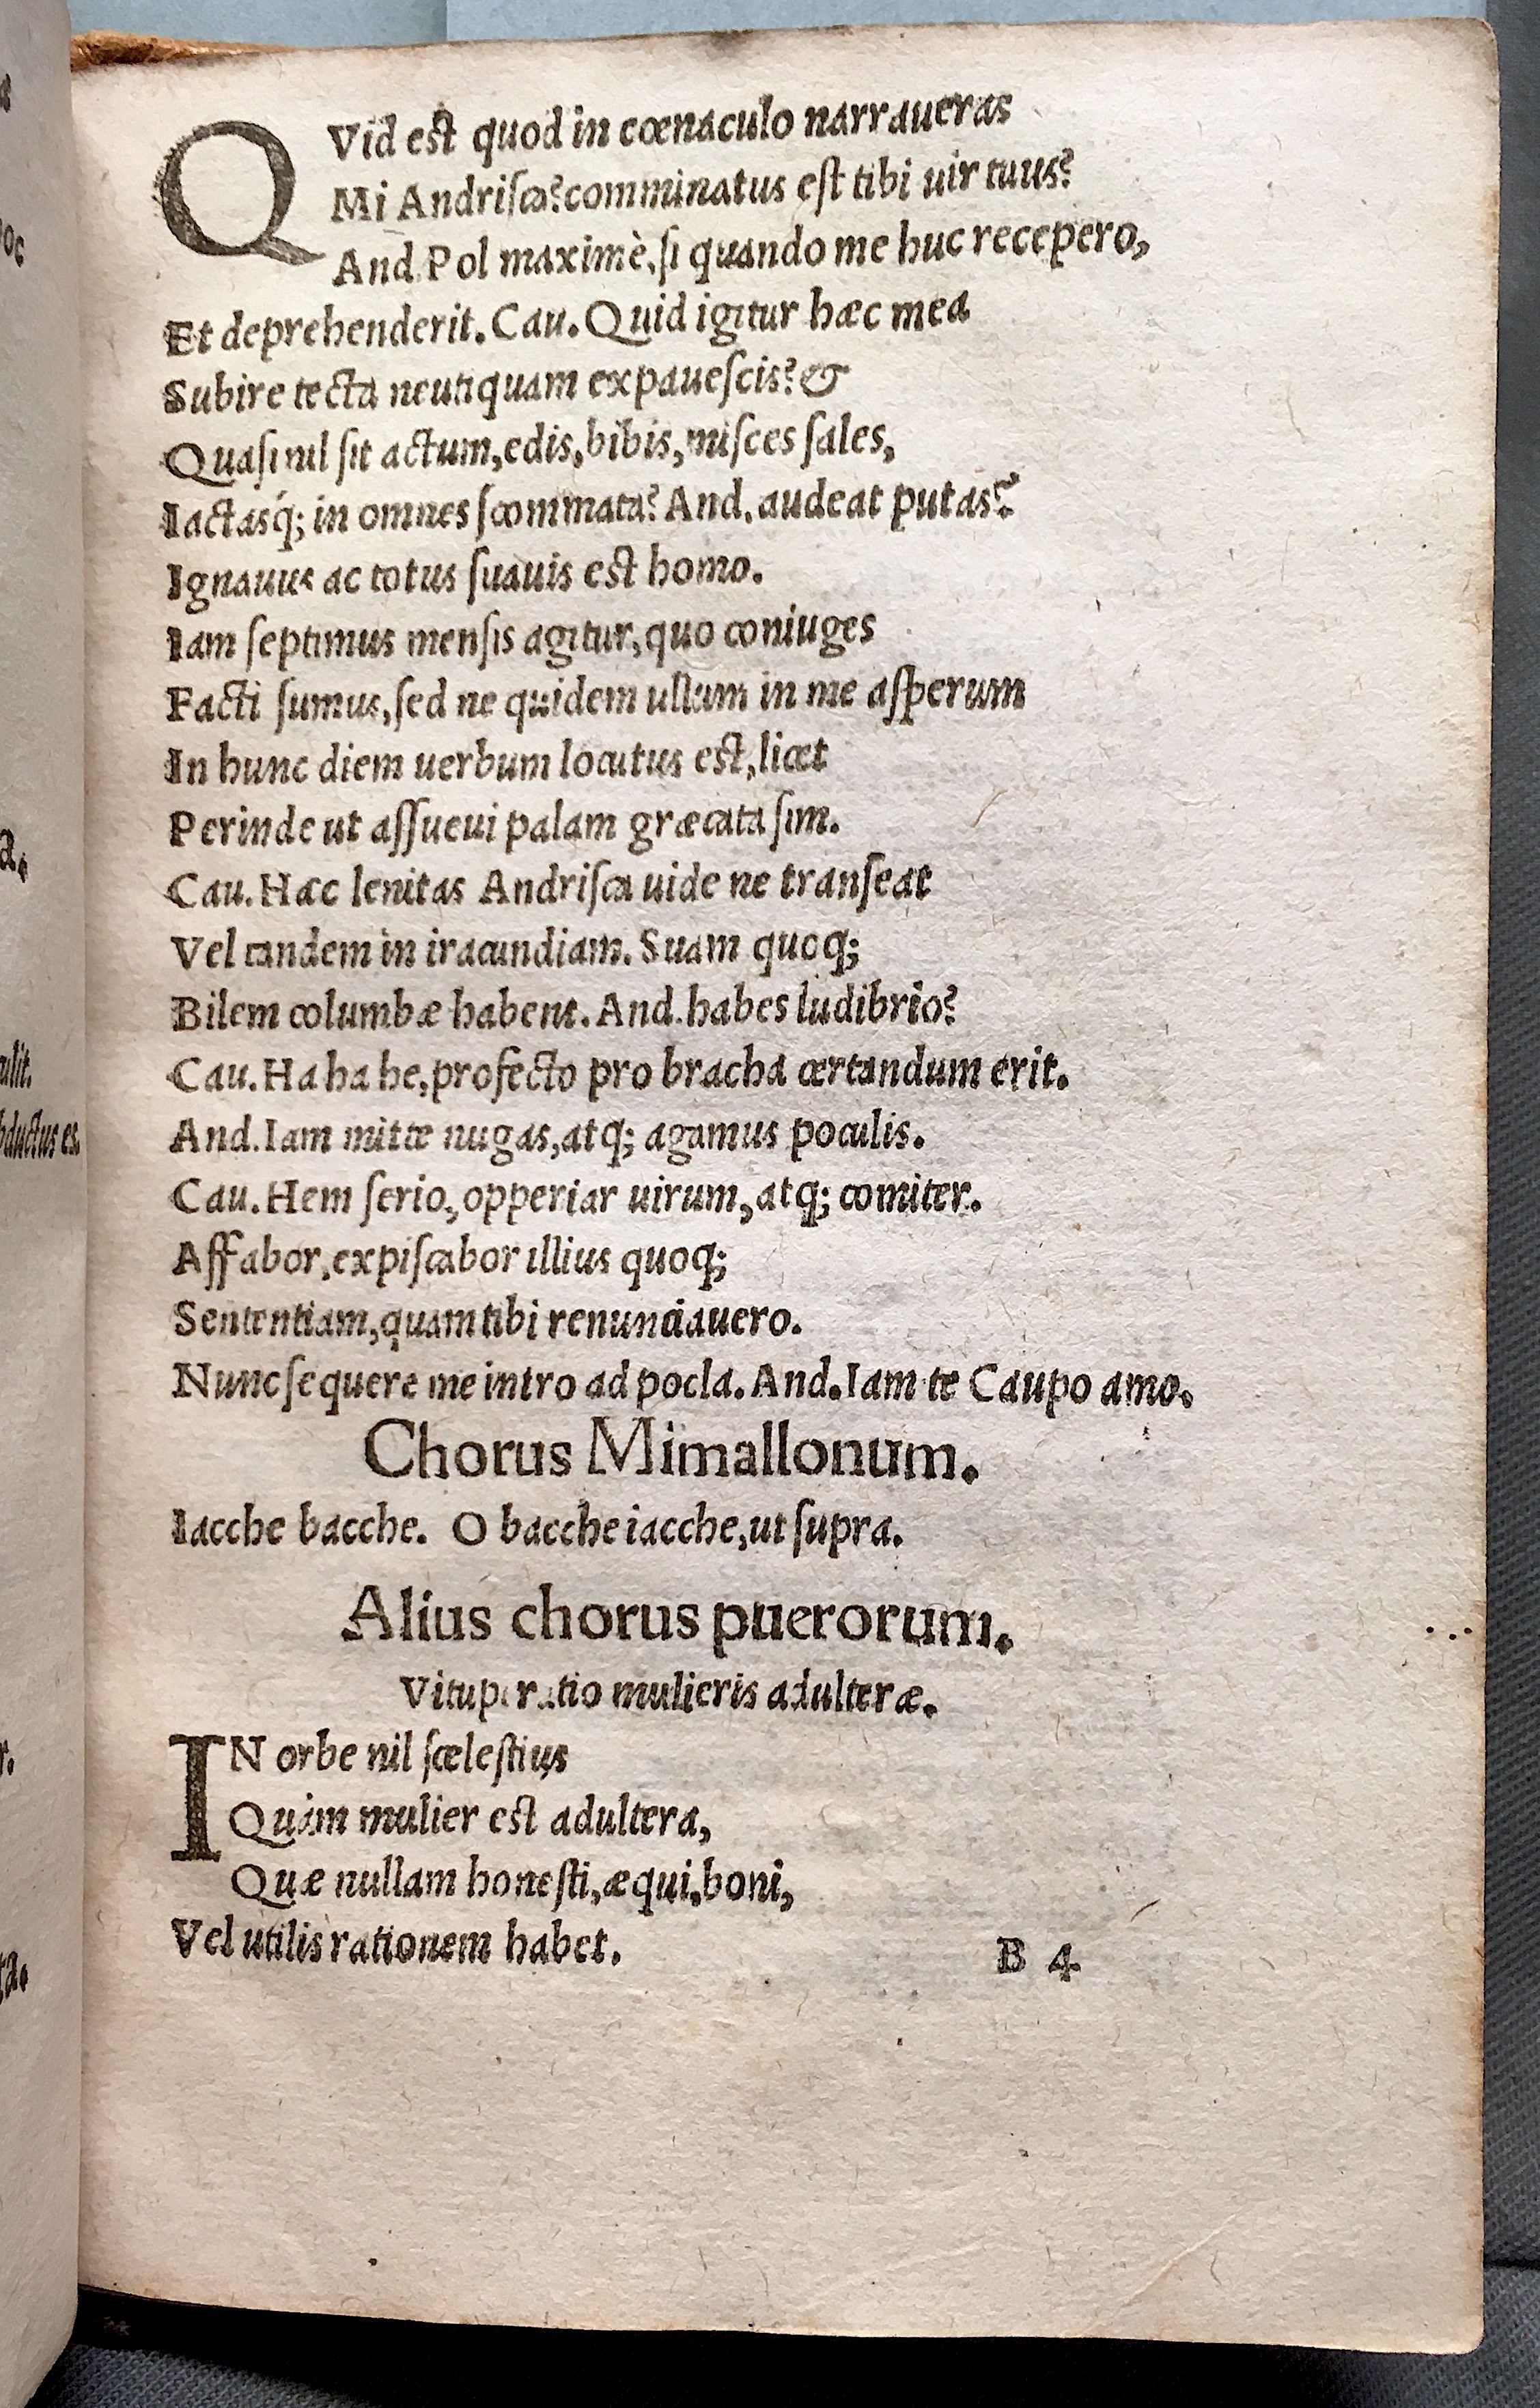 QVid est quod in cœnaculo narraueras
Mi Andrisca? comminatus est tibi uir tuus?
And. Pol maximè, si quando me huc recepero,
Et deprehenderit. Cau. Quid igitur hæc mea
Subire tecta neutiquam expauescis? &
Quasi nil sit actum, edis, bibis, misces sales,
Iactasq́; in omnes scommata? And. audeat putas?
Ignauus ac totus suauis est homo.
Iam septimus mensis agitur, quo coniuges
Facti sumus, sed ne quidem ullum in me asperum
In hunc diem uerbum locutus est, licet
Perinde ut assueui palam græcata sim.
Cau. Hac lenitas Andrisca uide ne transeat
Vel tandem in iracundiam. Suam quoq;
Bilem columbæ habent. And. habes ludibrio?
Cau. Ha ha he, profecto pro bracha certandum erit.
And. Iam mitte nugas, atq; agamus poculis.
Cau. Hem serio, opperiar uirum, atq; comiter.
Affabor, expiscabor illius quoq;
Sententiam, quam tibi renunciauero.
Nunc sequere me intro ad pocla. And. Iam te Caupo amo.
Chorus Mimallonum.
Iacche bacche. O bacche iacche, ut supra.
Alius chorus puerorum.
Vituperatio mulieris adulteræ.
IN orbe nil scelestius
Quàm mulier est adultera,
Quæ nullam honesti, æqui, boni,
Vel utilis rationem habet.
B 4